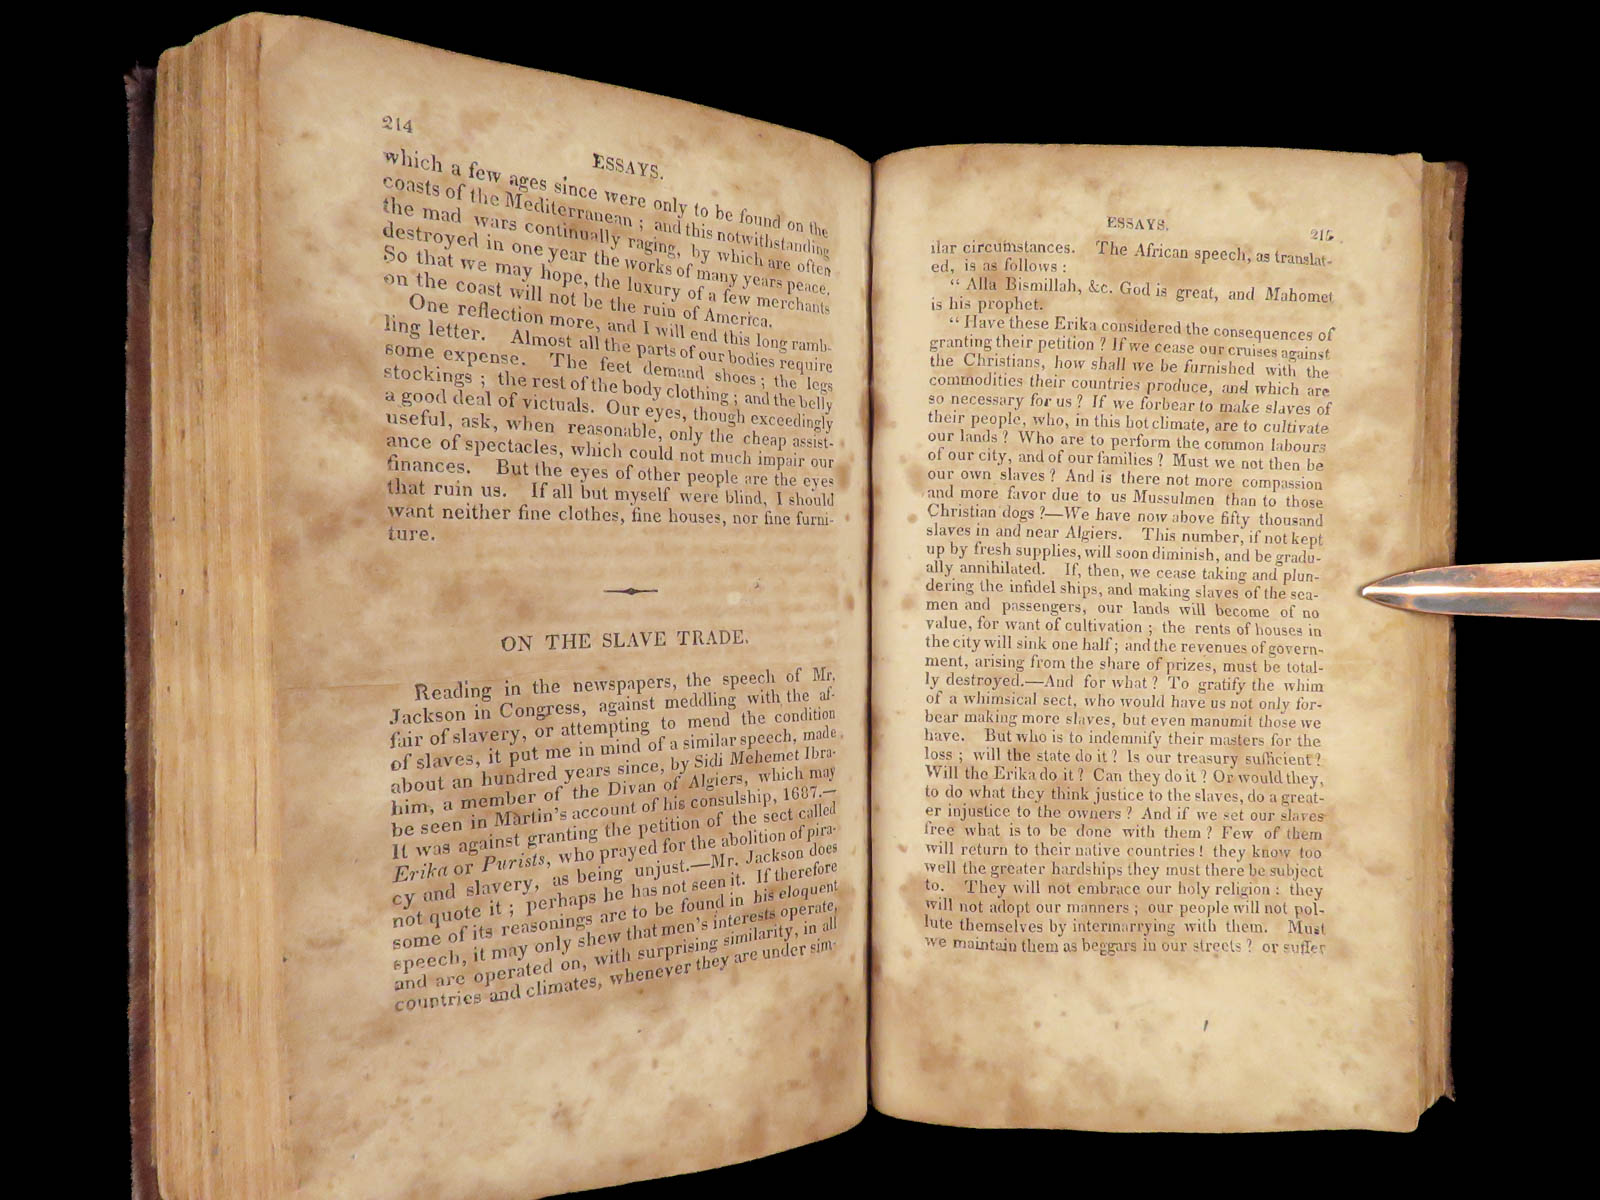 214
ESSAYS.
which a few ages since were only to be found on the
coasts of the Mediterranean ; and this notwithstanding
the mad wars continually raging, by which are often
destroyed in one year the works of many years peace.
So that we may hope, the luxury of a few merchants
on the coast will not be the ruin of America.
One reflection more, and I will end this long ramb-
ling letter. Almost all the parts of our bodies require
some expense. The feet demand shoes ; the legs
stockings ; the rest of the body clothing ; and the belly
a good deal of victuals. Our eyes, though exceedingly
useful, ask, when reasonable, only the cheap assist-
ance of spectacles, which could not much impair our
finances. But the eyes of other people are the eyes
that ruin us. If all but myself were blind, I should
want neither fine clothes, fine houses, nor fine furni-
ture.
ON THE SLAVE TRADE.
Reading in the newspapers, the speech of Mr.
Jackson in Congress, against meddling with the af-
fair of slavery, or attempting to mend the condition
of slaves, it put me in mind of a similar speech, made
about an hundred years since, by Sidi Mehemet Ibra-
him, a member of the Divan of Algiers, which may
be seen in Martin's account of his consulship, 1687.—
It was against granting the petition of the sect called
Erika or Purists, who prayed for the abolition of pira-
cy and slavery, as being unjust.—Mr. Jackson does
not quote it ; perhaps he has not seen it. If therefore
some of its reasonings are to be found in his eloquent
speech, it may only shew that men's interests operate,
and are operated on, with surprising similarity, in all
countries and climates, whenever they are under sim-
ESSAYS. 215
ilar circumstances. The African speech, as translat-
ed, is as follows :
" Alla Bismillah, &c. God is great, and Mahomet
is his prophet.
" Have these Erika considered the consequences of
granting their petition ? If we cease our cruises against
the Christians, how shall we be furnished with the
commodities their countries produce, and which are
so necessary for us ? If we forbear to make slaves of
their people, who, in this hot climate, are to cultivate
our lands ? Who are to perform the common labours
of our city, and of our families ? Must we not then be
our own slaves ? And is there not more compassion
and more favor due to us Mussulmen than to those
Christian dogs ?—We have now above fifty thousand
slaves in and near Algiers. This number, if not kept
up by fresh supplies, will soon diminish, and be gradu-
ally annihilated. If, then, we cease taking and plun-
dering the infidel ships, and making slaves of the sea-
men and passengers, our lands will become of no
value, for want of cultivation ; the rents of houses in
the city will sink one half ; and the revenues of govern-
ment, arising from the share of prizes, must be total-
ly destroyed.—And for what ? To gratify the whim
of a whimsical sect, who would have us not only for-
bear making more slaves, but even manumit those we
have. But who is to indemnify their masters for the
loss ; will the state do it ? Is our treasury sufficient ?
Will the Erika do it ? Can they do it ? Or would they,
to do what they think justice to the slaves, do a great-
er injustice to the owners ? And if we set our slaves
free what is to be done with them ? Few of them
will return to their native countries ! they know too
well the greater hardships they must there be subject
to. They will not embrace our holy religion : they
will not adopt our manners ; our people will not pol-
lute themselves by intermarrying with them. Must
we maintain them as beggars in our streets ? or suffer